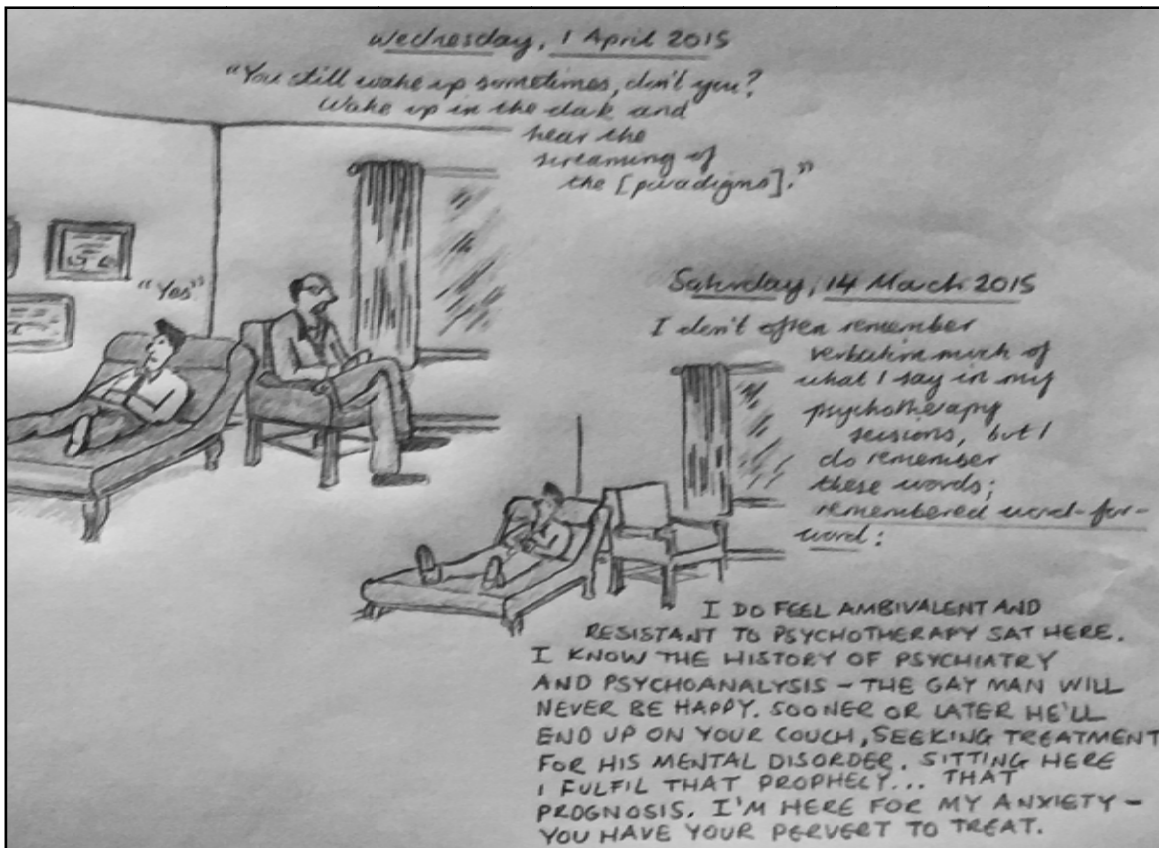 Wednesday, 1 April 2015
"You still wake up sometimes, don't you?
Wake up in the dark and
hear the
screaming of
the [paradigms]."
"Yes"
Saturday, 14 March 2015
I don't often remember
verbatim much of
what I say in my
psychotherapy
sessions, but I
do remember
these words;
remembered word-for-
word:
I DO FEEL AMBIVALENT AND
RESISTANT TO PSYCHOTHERAPY SAT HERE.
I KNOW THE HISTORY OF PSYCHIATRY
AND PSYCHOANALYSIS – THE GAY MAN WILL
NEVER BE HAPPY. SOONER OR LATER HE'LL
END UP ON YOUR COUCH, SEEKING TREATMENT
FOR HIS MENTAL DISORDER. SITTING HERE
I FULFIL THAT PROPHECY... THAT
PROGNOSIS. I'M HERE FOR MY ANXIETY –
YOU HAVE YOUR PERVERT TO TREAT.